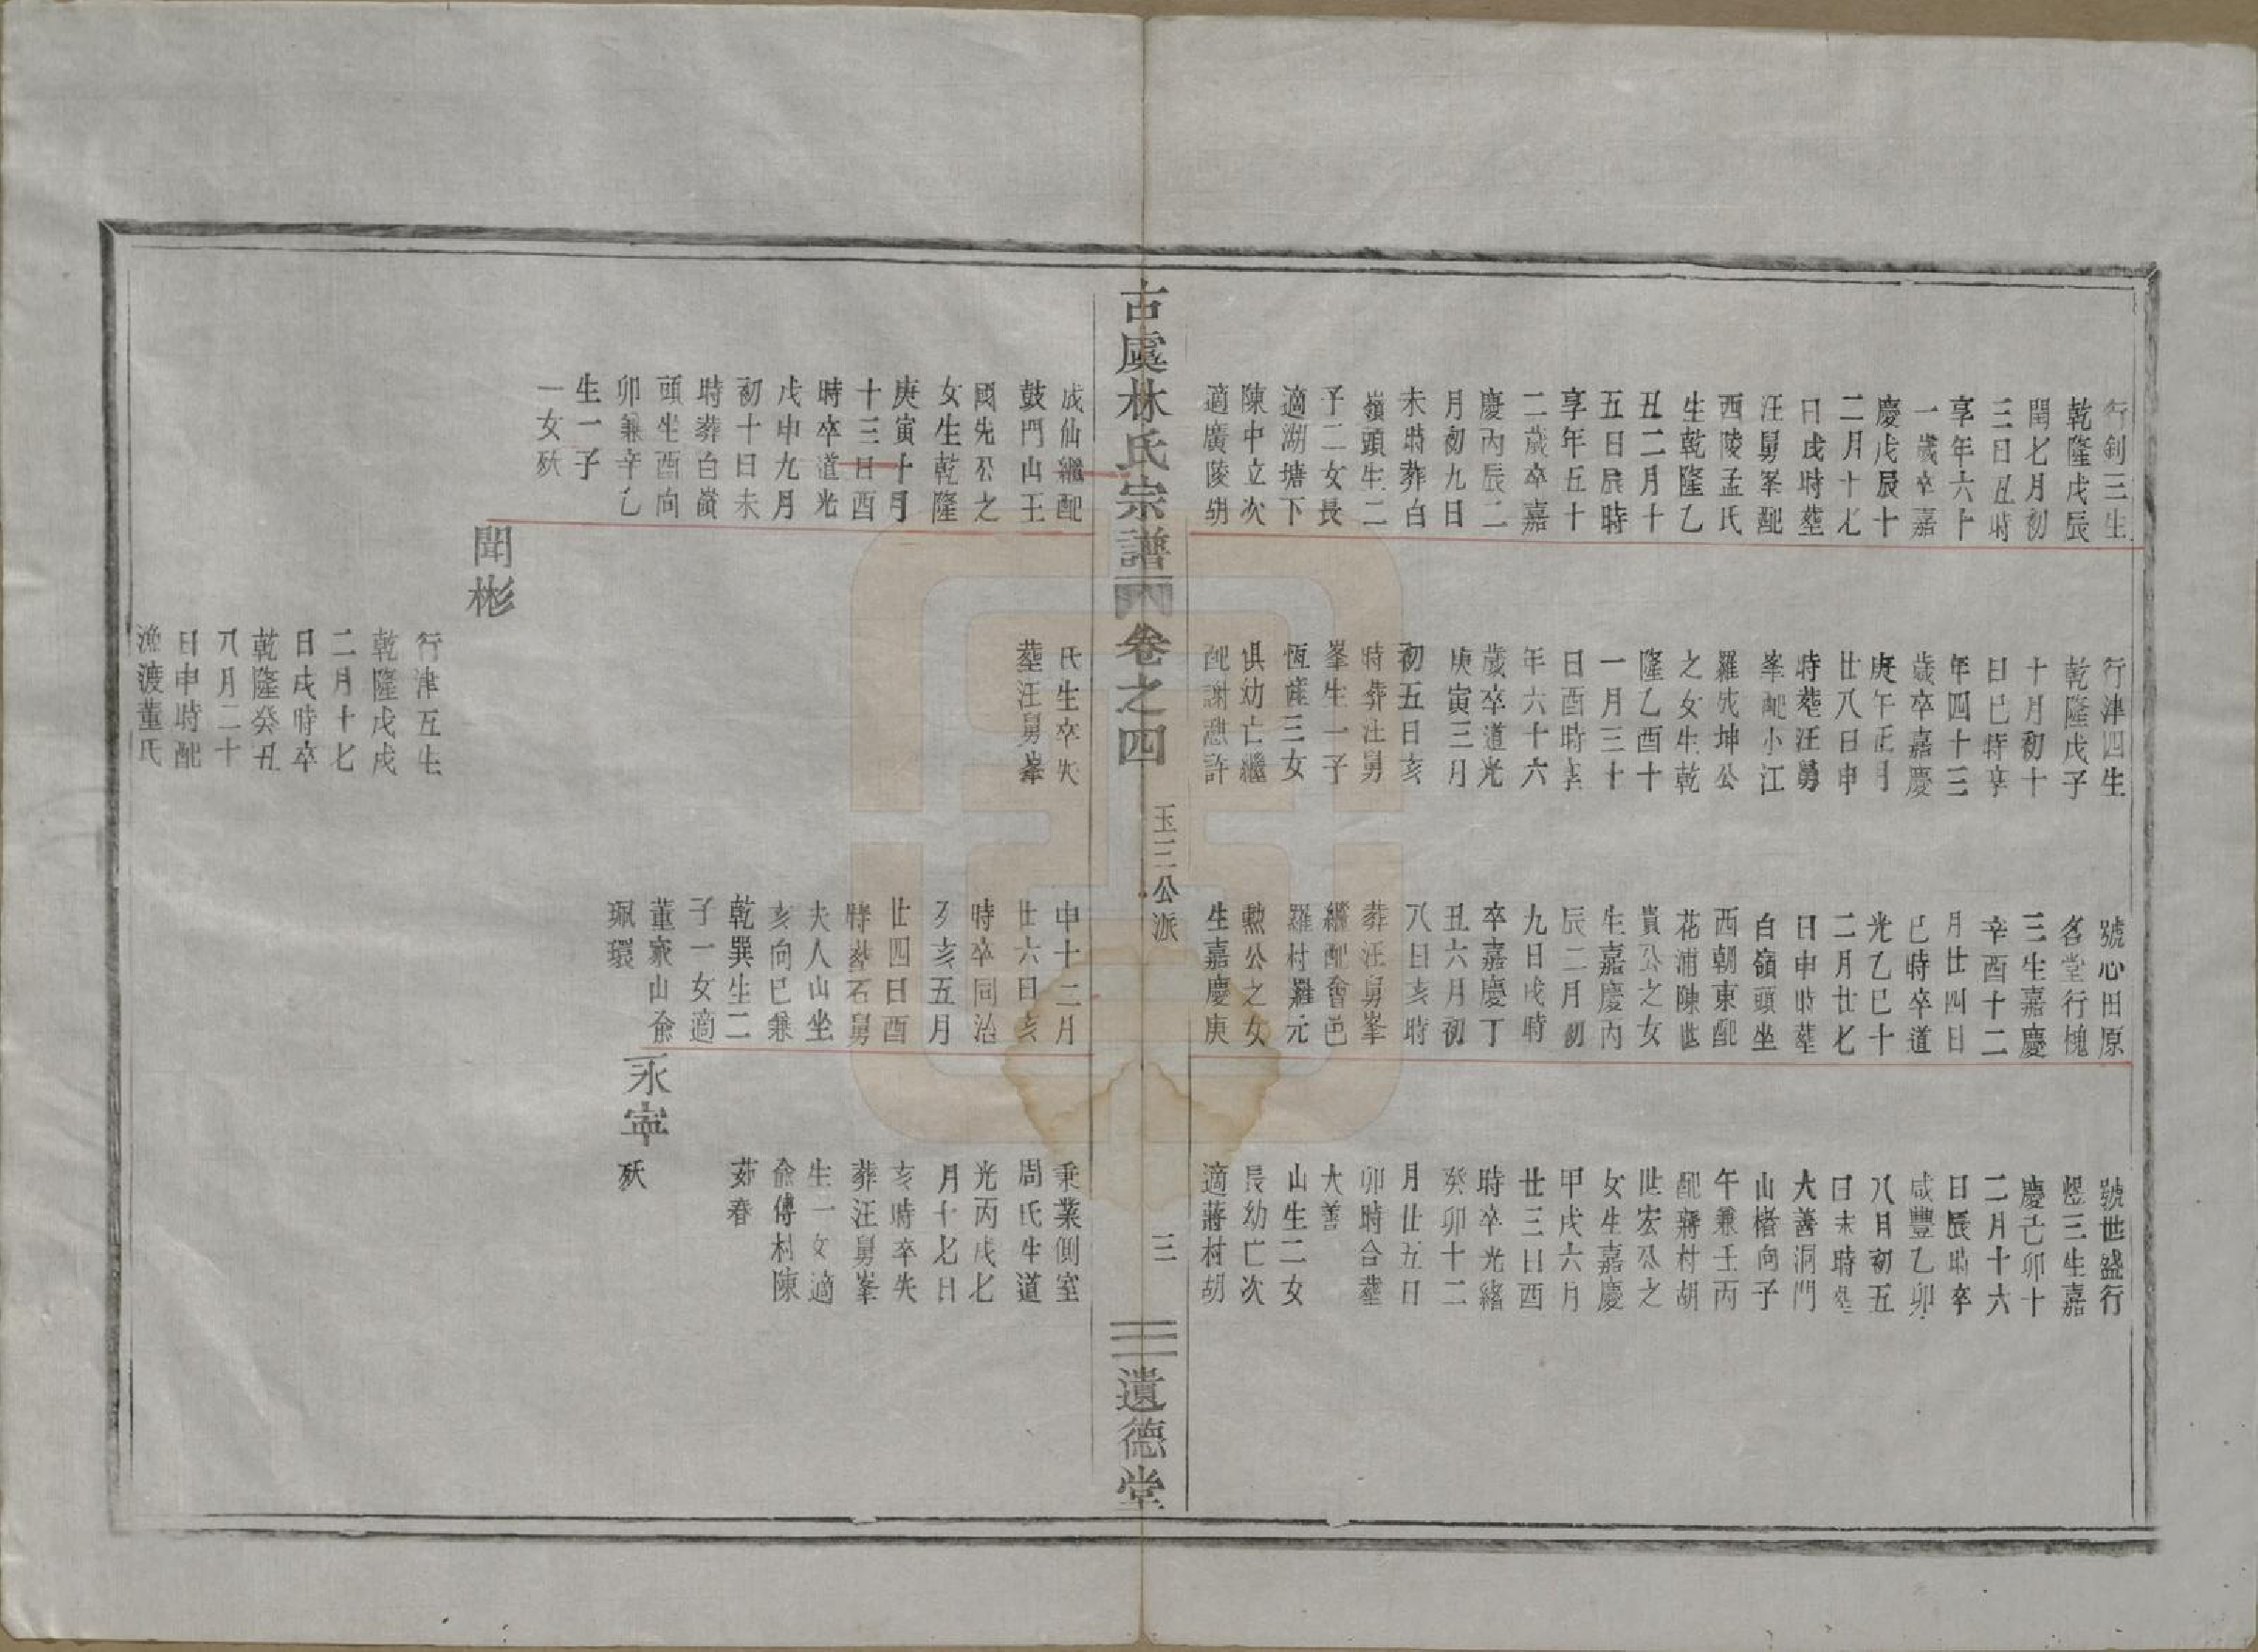 行釗三生
乾隆戊辰
閏七月初
三日丑時
享年六十
一歲卒嘉
慶戊辰十
二月十七
日戌時塟
汪舅峯配
西陵孟氏
生乾隆乙
丑二月十
五日辰時
享年五十
二歲卒嘉
慶丙辰二
月初九日
未時葬白
嶺頭生二
子二女長
適湖塘下
陳中立次
適廣陵胡
行津四生
乾隆戊子
十月初十
日巳時享
年四十三
歲卒嘉慶
庚午正月
廿八日申
時塟汪舅
峯配小江
羅先坤公
之女生乾
隆乙酉十
一月三十
日酉時享
年六十六
歲卒道光
庚寅三月
初五日亥
時葬汪舅
峯生一子
恆薩三女
俱幼亡繼
配謝憩許
號心田原
名堂行槐
三生嘉慶
辛酉十二
月廿四日
巳時卒道
光乙巳十
二月廿七
日申時塟
白嶺頭坐
西朝東配
花浦陳世
貴公之女
生嘉慶丙
辰二月初
九日戌時
卒嘉慶丁
丑六月初
八日亥時
葬汪舅峯
繼配會邑
羅村羅元
勲公之女
生嘉慶庚
號世盛行
煜三生嘉
慶己卯十
二月十六
日辰時卒
咸豐乙卯
八月初五
日未時塟
大善洞門
山楮向子
午兼壬丙
配蔣村胡
世宏公之
女生嘉慶
甲戌六月
廿三日酉
時卒光緒
癸卯十二
月廿五日
卯時合塟
大善
山生二女
長幼亡次
適蔣村胡
古虞林氏宗譜 卷之四 玉三公派 三 遺德堂
成仙繼配
鼓門山王
國先公之
女生乾隆
庚寅十月
十三日酉
時卒道光
戊申九月
初十日未
時葬白嶺
頭坐酉向
卯兼辛乙
生一子
一女殀
氏生卒失
塟汪舅峯
聞彬
行津五生
乾隆戊戌
二月十七
日戌時卒
乾隆癸丑
八月二十
日申時配
漁渡董氏
申十二月
廿六日亥
時卒同治
癸亥五月
廿四日酉
時葬石舅
夫人山坐
亥向巳兼
乾巽生二
子一女適
董家山兪
珮環
永寧
殀
秉業側室
周氏生道
光丙戌七
月十七日
亥時卒失
葬汪舅峯
生一女適
兪傅村陳
茹春